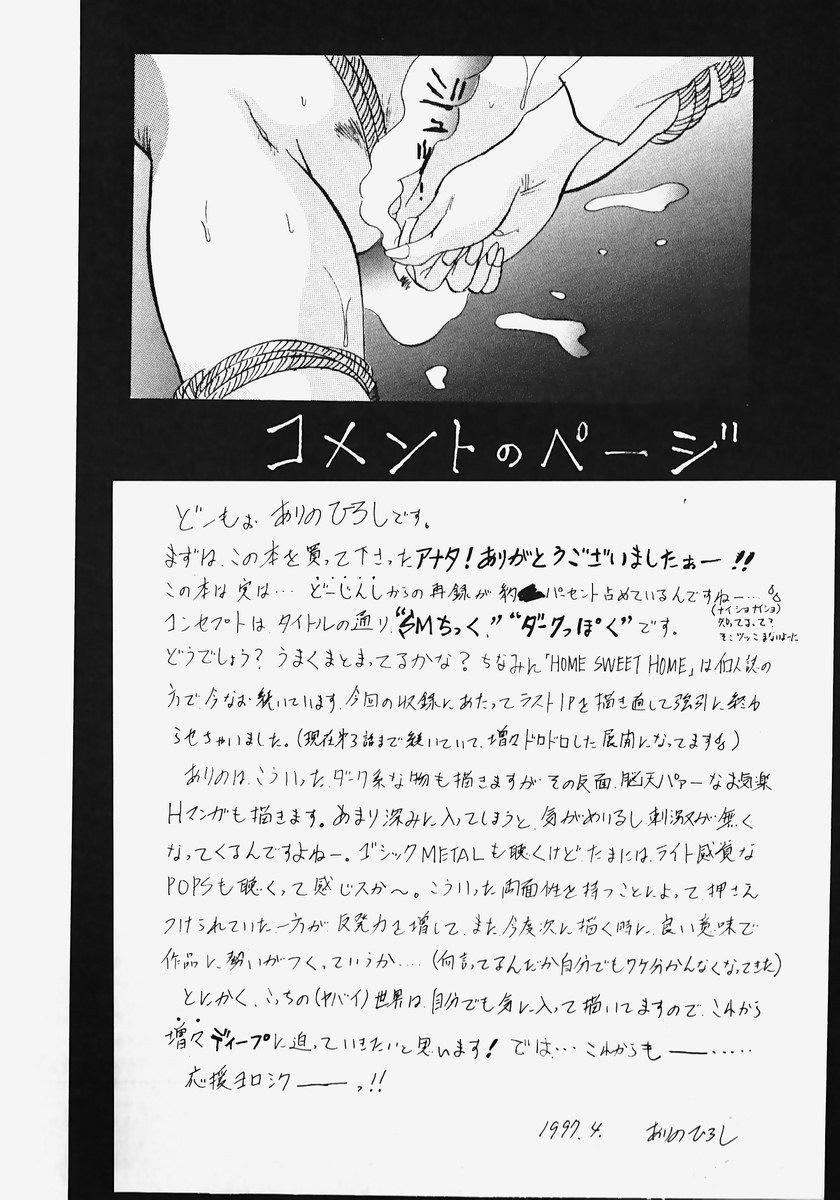 ジュ
コメントのページ
どーもぉ ありのひろしです。
まずは、この本を買って下さったアナタ!ありがとうございましたぉー!!
この本は実は… どーじんしからの再録が約 パセント占めているんですねー…
(ナイショナイショ)
知ってるって?
そこツッこまないよーた
コンセプトは、タイトルの通り、“SMちっく”“ダークっぽく”です。
どうでしょう?うまくまとまってるかな?ちなみに「HOME SWEET HOME」は個人誌の
方で今なお続いています。今回の収録にあたってラスト1Pを描き直して強引に終わ
らせちゃいました。(現在第3話まで続いていて、増々ドロドロした展開になってます)
ありのは、こういった、ダーク系な物も描きますが、その反面、脳天パァーなお気楽
Hマンガも描きます。あまり深みに入ってしまうと、気がめいるし刺激が無く
なってくるんですよねー。ゴシックMETALも聴くけど、たまには、ライト感覚な
POPSも聴くって感じスか〜。こういった両面性を持つことによって押さえ
つけられていた一方が、反発力を増して、また、今度次に描く時に、良い意味で
作品に、勢いがつくっていうか…(何言ってるんだか自分でもワケ分かんなくなってきた)
とにかく、こっちの(ヤバイ)世界は、自分でも気に入って描いてますので、これから
増々ディープに迫っていきたいと思います!では…これからも――……
応援ヨロシク――っ!!
1997.4. ありのひろし